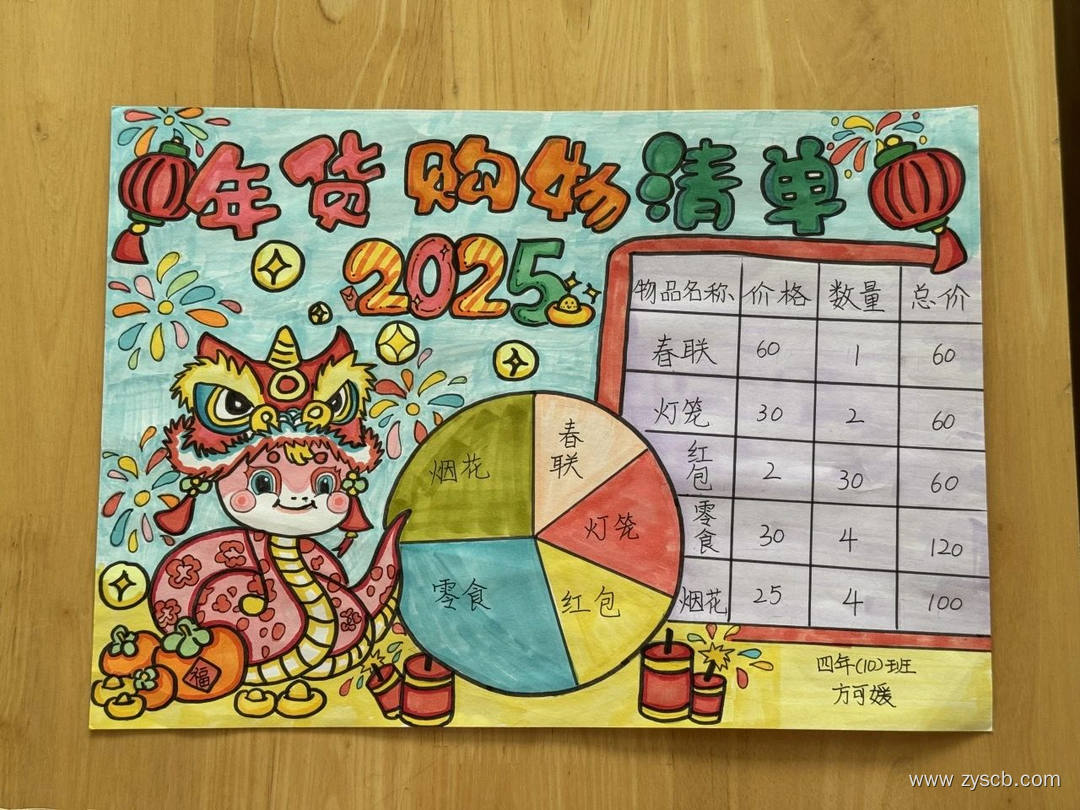 年货购物清单
2025
物品名称 价格 数量 总价
春联 60 1 60
灯笼 30 2 60
红包 2 30 60
零食 30 4 120
烟花 25 4 100
烟花
春联
灯笼
零食
红包
福
四年(10)班
方可媛
www.zyscb.com